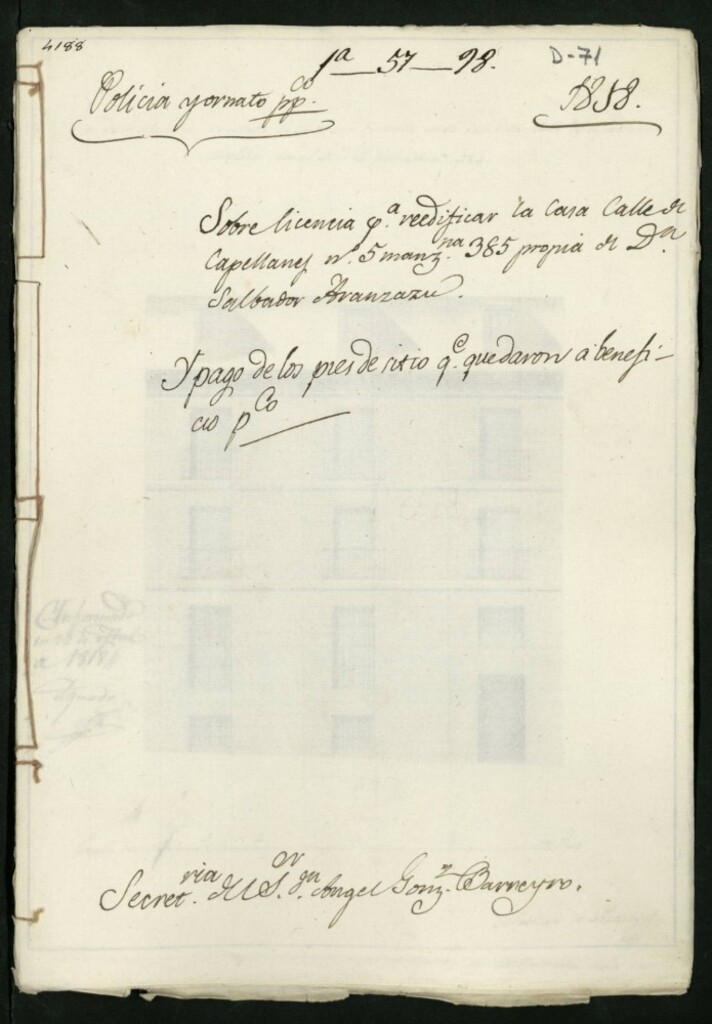 4188
1ª — 57 — 98.
D-71
Policia y ornato ppco.
1818.
Sobre licencia pª. reedificar la Casa Calle de
Capellanes nº. 5 manzna. 385 propia de Dn.
Salbador Aranzazu.
Y pago de los pies de sitio qe. quedaron a benefi-
cio pco
a 1818
Secretria. del Sor. dn. Angel Gonzz. Barreyro.